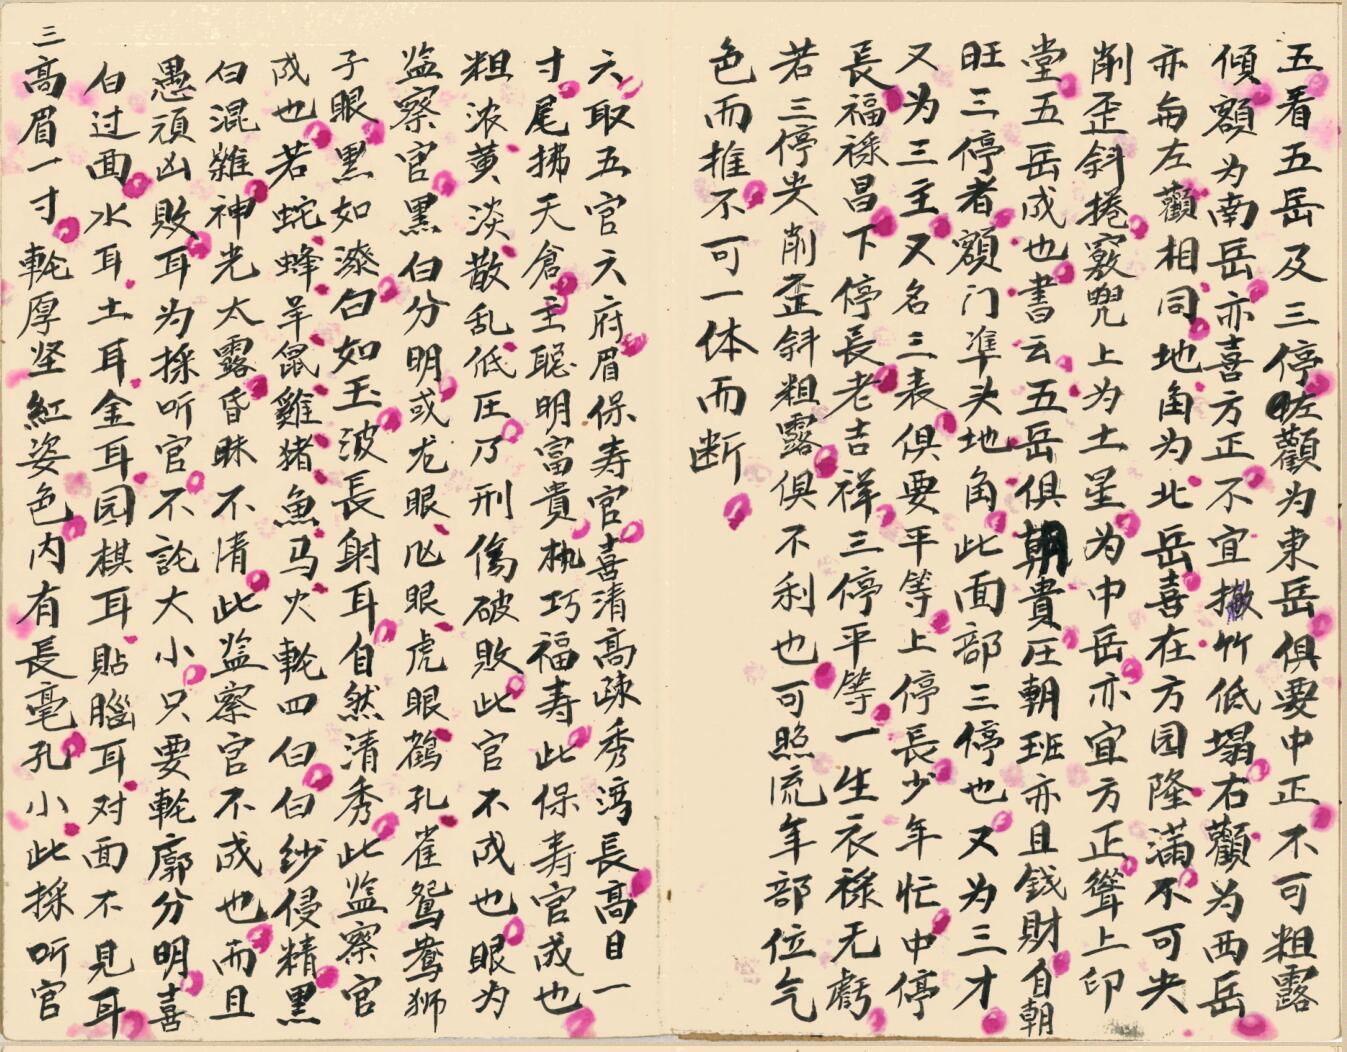 五看五岳及三停左顴为东岳俱要中正不可粗露
倾額为南岳亦喜方正不宜撇竹低塌右顴为西岳
亦与左顴相同地角为北岳喜在方园隆满不可尖
削歪斜捲竅兜上为土星为中岳亦宜方正聳上印
堂五岳成也書云五岳俱朝貴压朝班亦且銭財自朝
旺三停者額门準头地角此面部三停也又为三才
又为三主又名三表俱要平等上停長少年忙中停
長福禄昌下停長老吉祥三停平等一生衣禄无虧
若三停尖削歪斜粗露俱不利也可照流年部位气
色而推不可一体而断
六取五官六府眉保寿官喜清高疎秀湾長高目一
寸尾拂天倉主聡明富貴机巧福寿此保寿官成也
粗浓黄淡散乱低压乃刑傷破敗此官不成也眼为
监察官黑白分明或龙眼凤眼虎眼鶴孔雀鴛鴦狮
子眼黑如漆白如玉波長射耳自然清秀此监察官
成也若蛇蜂羊鼠雞猪魚马火輪四白白纱侵精黑
白混雜神光太露昏昧不清此监察官不成也而且
愚頑凶敗耳为採听官不論大小只要輪廓分明喜
白过面水耳土耳金耳园棋耳貼腦耳对面不見耳
三高眉一寸輪厚坚紅姿色内有長毫孔小此採听官